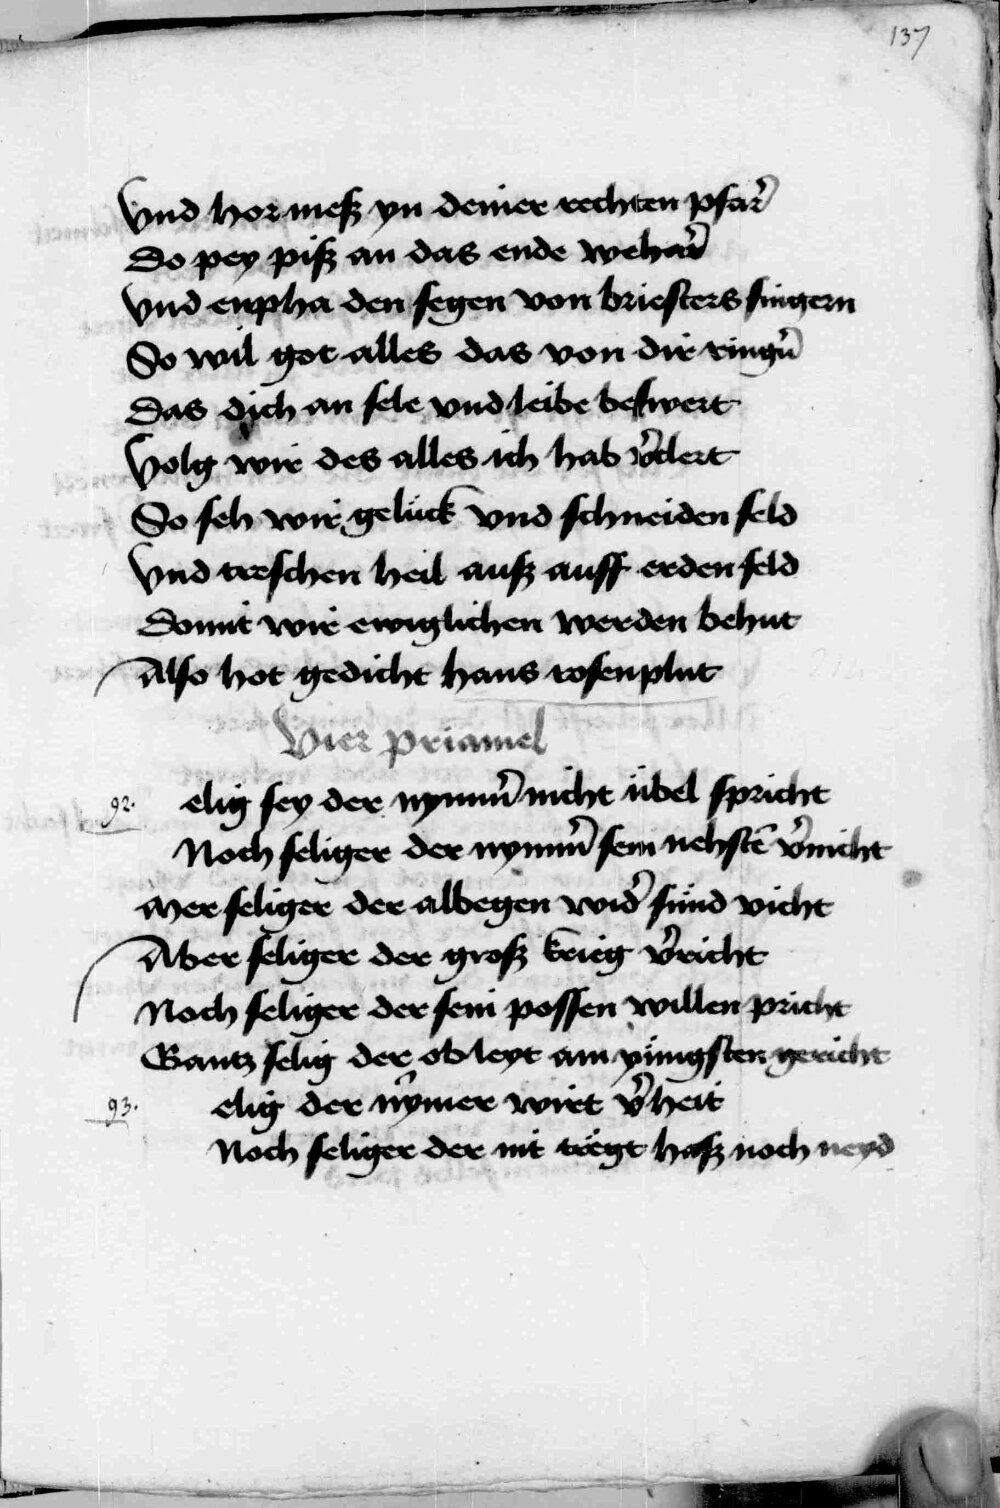 137
Vnd hor meß yn deiner rechten pfar̓
Do pey piß an das ende wehar̓
Vnd enpha den segen von briesters fingern
So wil got alles das von dir ringn̓
Das dich an sele vnd leibe beswert
Volg wir des alles ich hab v̓clert
So seh wir gelück vnd schneiden feld
Vnd treschen heil auß auff erden feld
Domit wir ewiglichen werden behut
Also hot gedicht hans rosenplut
Vier priamel
92. elig sey der nymm̓ nicht übel spricht
Noch seliger der nymm̓ sein nehstē v̓nicht
Mer seliger der albegen wid̓ sünd vicht
Aber seliger der groß krieg v̓richt
Noch seliger der sein possen willen pricht
Gantz selig der obleyt am yüngsten gericht
93. elig der nymer wirt v̓heit
Noch seliger der nit tregt haß noch neyd